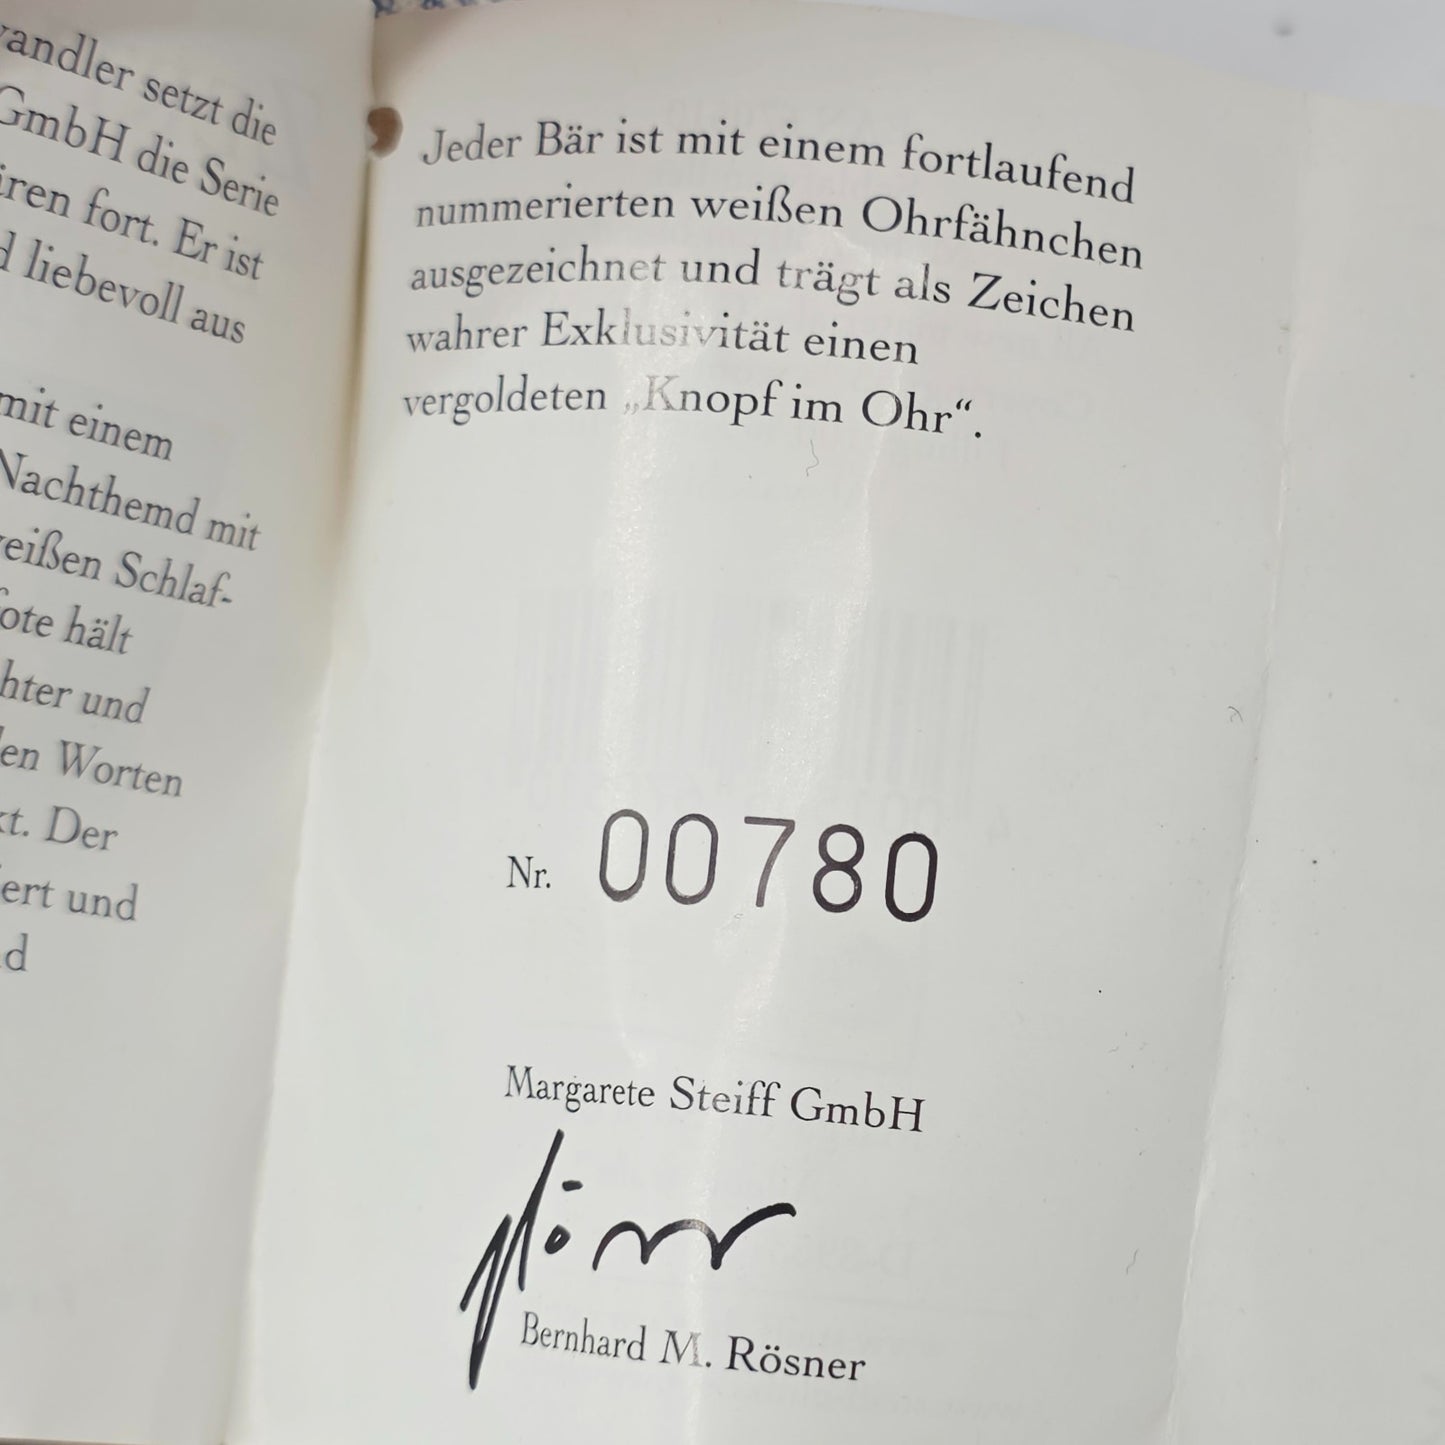 setzt die
GmbH die Serie
fort. Er ist
liebevoll aus
mit einem
Nachthemd mit
Schlaf-
hält
und
Worten
Der
und
Jeder Bär ist mit einem fortlaufend
nummerierten weißen Ohrfähnchen
ausgezeichnet und trägt als Zeichen
wahrer Exklusivität einen
vergoldeten „Knopf im Ohr“.
Nr. 00780
Margarete Steiff GmbH
Bernhard M. Rösner